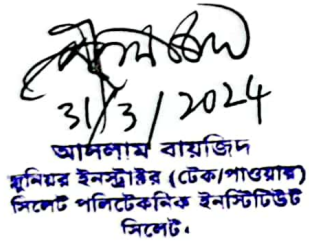 31/3/2024
আসলাম বায়জিদ
জুনিয়র ইনস্ট্রাক্টর (টেক/পাওয়ার)
সিলেট পলিটেকনিক ইনস্টিটিউট
সিলেট।